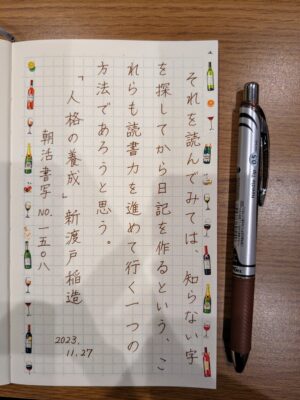 それを読んでみては、知らない字
を探してから日記を作るという、こ
れらも読書力を進めて行く一つの
方法であろうと思う。
「人格の養成」新渡戸稲造
朝活書写 NO.一五〇八
2023.
11.27